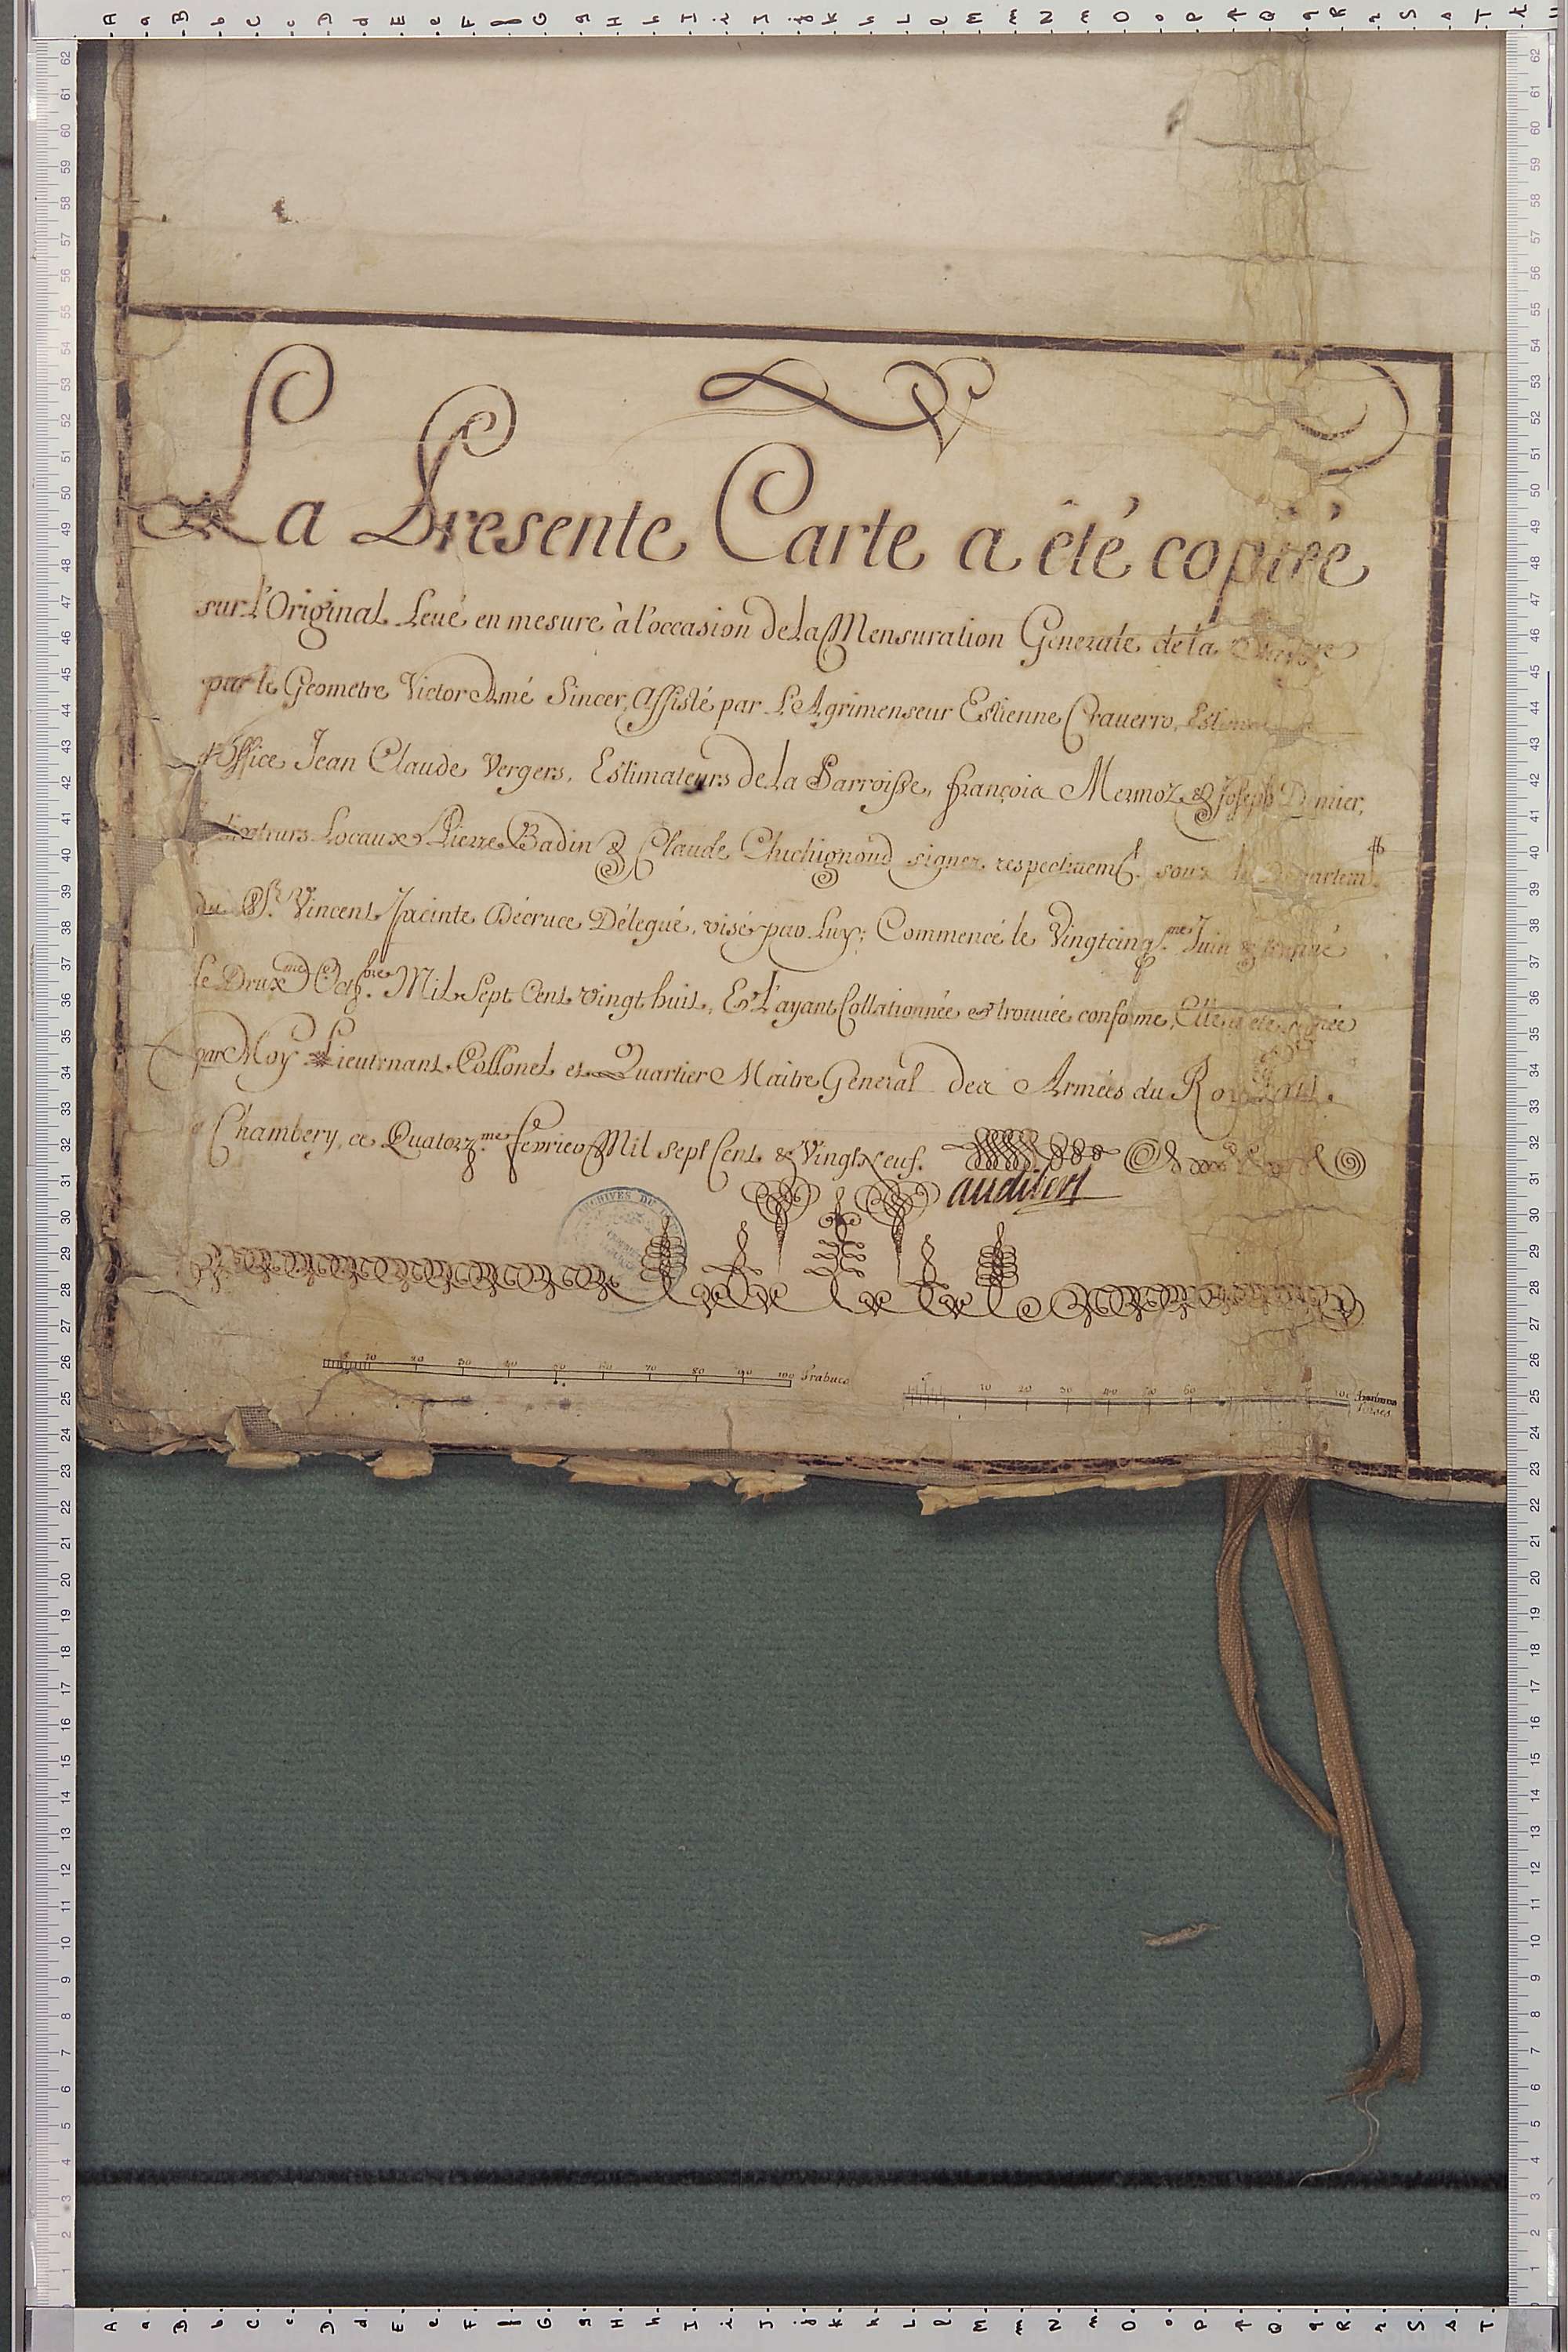 La Presente Carte a êté copiée
sur l'Original Leué en mesure à l'occasion de la Mensuration Generale de la
par le Geometre Victor Amé Sincer, Assisté par L'Agrimenseur Estienne Crauerro,
d'Office Jean Claude Vergers, Estimateurs de la Parroisse, françois Mermoz & Joseph
Locaux Pierre Badin & Claude Chichignoud signez respectiuem.t sous le
du S.r Vincent Jacinte Décruce Délegué, visé par Luy; Commencé le Vingtcinq.me Juin &
Le Deux.me Octob.re Mil Sept Cent vingt huit, Et L'ayant Collationnée et trouuée conforme, Elle a êté
par Moy Lieutenant Collonel et Quartier Maitre General des Armées du Roy.
à Chambery, ce Quatorz.me feurier Mil sept Cent & Vingt Neuf.
audibert
ARCHIVES
5 10 20 30 40 50 60 70 80 90 100 Trabucs
10 20 30 40 50 60 100